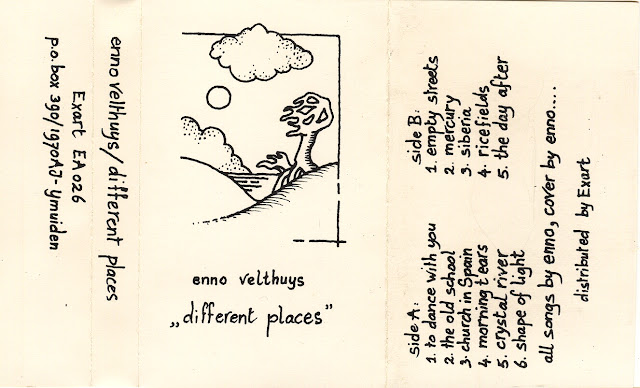 enno velthuys/different places
Exart EA026
p.o. box 390/1970AJ-ijmuiden
enno velthuys
„different places”
side A:
1. to dance with you
2. the old school
3. church in Spain
4. morning tears
5. crystal river
6. shape of light
side B:
1. empty streets
2. mercury
3. siberia
4. ricefields
5. the day after
all songs by enno, cover by enno.....
distributed by Exart